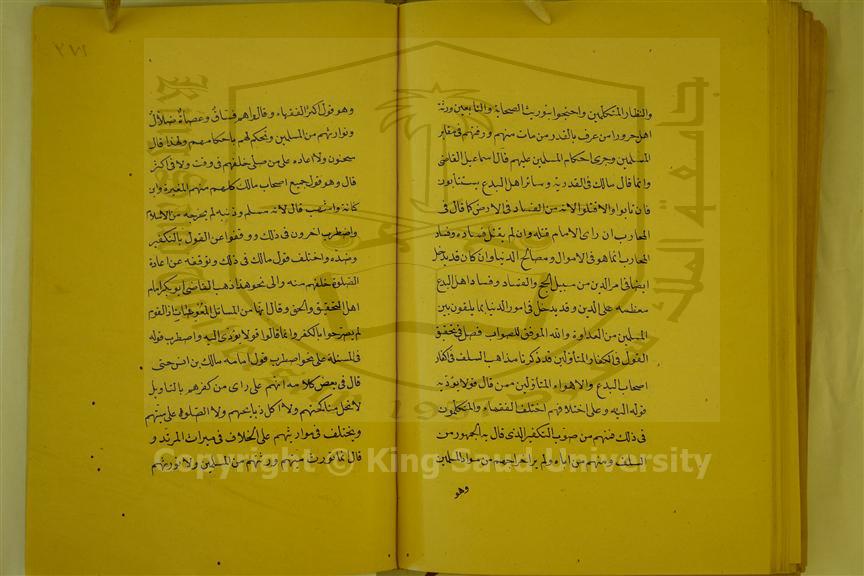 والنظار المتكلمين واحتجوا بتوريث الصحابة والتابعين ورثة
اهل حرورا من عرف بالقدر من مات منهم ودفنهم فى مقابر
المسلمين وجرى احكام المسلمين عليهم قال اسماعيل القاضى
وانما قال مالك فى القدرية وسائر اهل البدع يستتابون
فان تابوا والا قتلوا لانه من الفساد فى الارض كما قال فى
المحارب ان راى الامام قتله وان لم يقتل قتله وفساد
المحارب انما هو فى الاموال ومصالح الدنيا وان كان قد يدخل
ايضا فى امر الدين من سبيل الحج والجهاد وفساد اهل البدع
معظمه على الدين وقد يدخل فى امور الدنيا بما يلقون بين
المسلمين من العداوة والله الموفق للصواب فصل فى تحقيق
القول فى اكفار المتاولين قد ذكرنا مذاهب السلف فى اكفار
اصحاب البدع والاهواء المتاولين ممن قال قولا يؤديه
قوله اليه وعلى اختلافهم اختلف الفقهاء والمتكلمون
فى ذلك فمنهم من صوب التكفير الذى قال به الجمهور من
السلف ومنهم من اباه ولم ير اخراجهم من سواد المسلمين
وهو
وهو قول اكثر الفقهاء وقالوا هم فساق وعصاة ضلال
ونوارثهم من المسلمين ونحكم لهم باحكامهم ولهذا قال
سحنون ولا اعاده على من صلى خلفهم فى وقت ولا فى اكثر
قال وهو قول جميع اصحاب مالك كلهم منهم المغيرة وابن
كنانة واشهب قال لانه مسلم وذنبه لم يخرجه من الاسلام
واضطرب اخرون فى ذلك ووقفوا عن القول بالتكفير
وضده واختلف قول مالك فى ذلك وتوقفه عن اعادة
الصلوة خلفهم منه والى نحو هذا ذهب القاضى ابو بكر امام
اهل التحقيق والحق وقال انها من المسائل المعوصات اذ القوم
لم يصرحوا بالكفر وانما قالوا قولا يؤدى اليه واضطرب قوله
فى المسئلة على نحو اضطرب قول امامه مالك بن انس حتى
قال فى بعض كلامه انهم على راى من كفرهم بالتاويل
لا تحل مناكحتهم ولا اكل ذبايحهم ولا الصلوة على ميتهم
ويختلف فى مواريثهم على الخلاف فى ميراث المرتد و
قال انما نورث منهم ورثتهم من المسلمين ولا نورثهم
Copyright © King Saud University
جامعة الملك